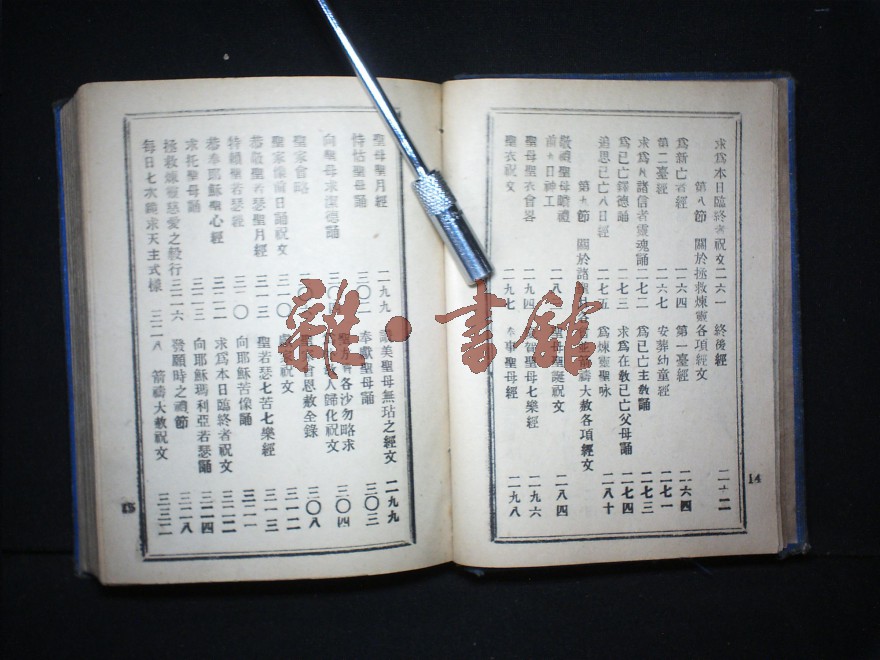 14
求爲本日臨終者祝文 二六一
終後經 二六二
第八節 關於拯救煉靈各項經文
爲新亡者經 二六四
第一臺經 二六四
第二臺經 二六七
安葬幼童經 二七一
求爲凡諸信者靈魂誦 二七二
爲已亡主教誦 二七三
爲已亡鐸德誦 二七三
求爲在教已亡父母誦 二七四
追思已亡八日經 二七五
爲煉靈聖咏 二八十
第九節 關於諸聖 祈禱大赦各項經文
敬禮聖母瞻禮前九日神工 二八
聖母聖誕祝文 二八四
聖母聖衣會畧 二九四
聖母七樂經 二九六
聖衣祝文 二九七
奉事聖母經 二九八
聖母聖月經 二九九
讚美聖母無玷之經文 二九九
恃怙聖母誦 三〇二
奉獻聖母誦 三〇三
向聖母求潔德誦 三〇四
聖方濟各沙勿略求 人歸化祝文 三〇四
聖家會略
聖家會恩赦全錄 三〇八
聖家像前日誦祝文 三一〇
聖家祝文 三一二
恭敬聖若瑟聖月經 三一三
聖若瑟七苦七樂經 三一三
特賴聖若瑟經 三二〇
向耶穌苦像誦 三二一
恭奉耶穌聖心經 三二二
求爲本日臨終者祝文 三二二
求托聖母誦 三二三
向耶穌瑪利亞若瑟誦 三二四
拯救煉靈慈愛之毅行 三二六
發願時之禮節 三二八
每日七次鐘求天主式樣 三二八
箭禱大赦祝文 三三二
15
雜·書館